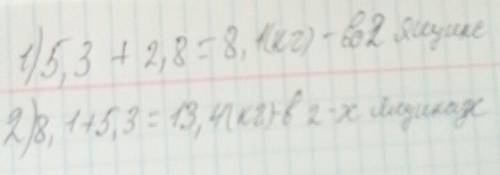 1) 5,3 + 2,8 = 8,1(кг) - во 2 ящике
2) 8,1+5,3 = 13,4(кг)-в 2-х ящиках